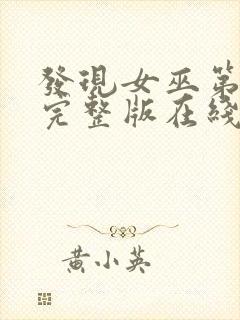 發現女巫第
完整版在綫
黃小英